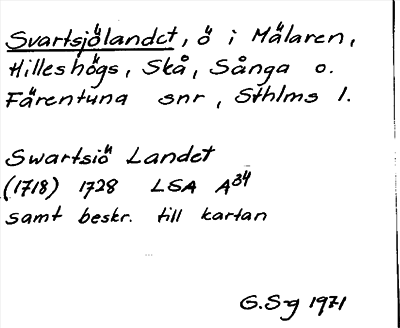 Svartsjölandet, ö i Mälaren,
Hilleshögs, Skå, Sånga o.
Färentuna snr, Sthlms l.
Swartsiö Landet
(1718) 1728 LSA A34
samt beskr. till kartan
G.S-g 1971